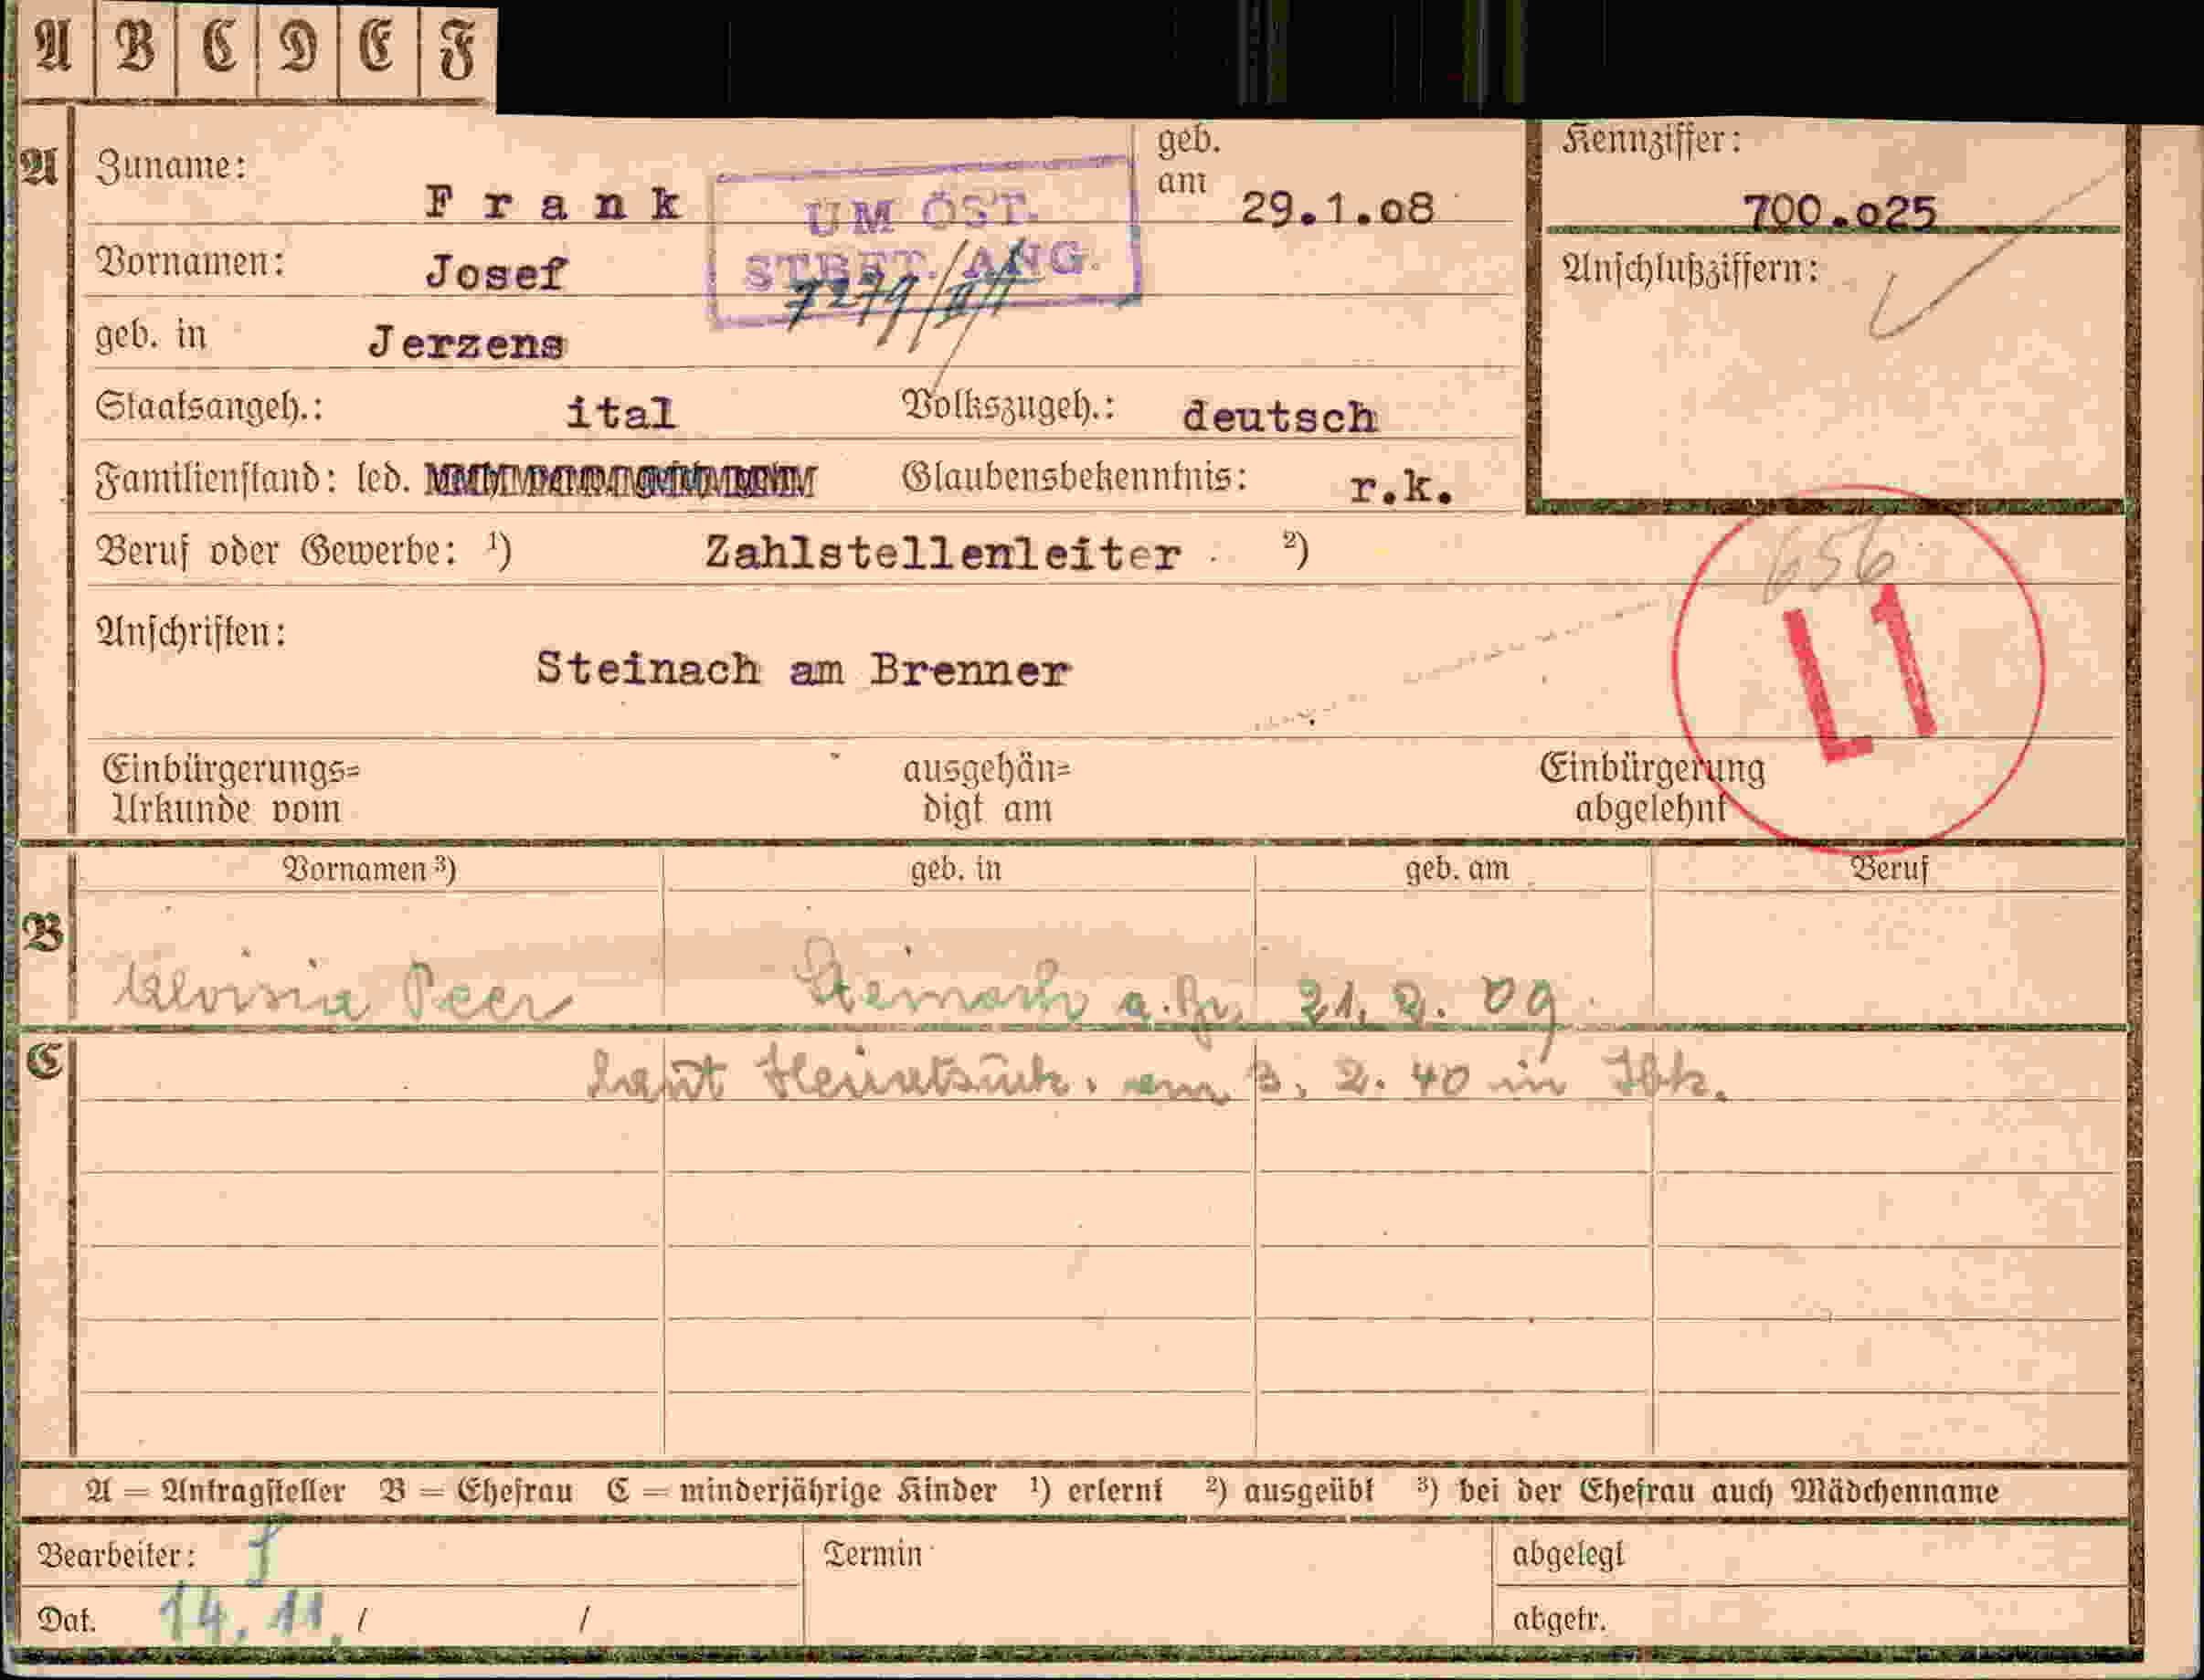 A B C D E F
A
Zuname: Frank
geb. am 29.1.08
Kennziffer: 700.025
UM ÖST.
STBFT. ANG.
7279/II
Vornamen: Josef
Anschlußziffern:
geb. in Jerzens
Staatsangeh.: ital Volkszugeh.: deutsch
Familienstand: led. Glaubensbekenntnis: r.k.
Beruf oder Gewerbe: ¹) Zahlstellenleiter ²)
656
L1
Anschriften: Steinach am Brenner
Einbürgerungs=
Urkunde vom
ausgehän=
digt am
Einbürgerung
abgelehnt
Vornamen ³) geb. in geb. am Beruf
B
Aloisia Peer Steinach a. Br. 21. 2. 09
C
laut Heiratsurk. am 3. 2. 40 in Ibk.
A = Antragsteller B = Ehefrau C = minderjährige Kinder ¹) erlernt ²) ausgeübt ³) bei der Ehefrau auch Mädchenname
Bearbeiter: Termin abgelegt
Dat. 14. 11. / / abgetr.